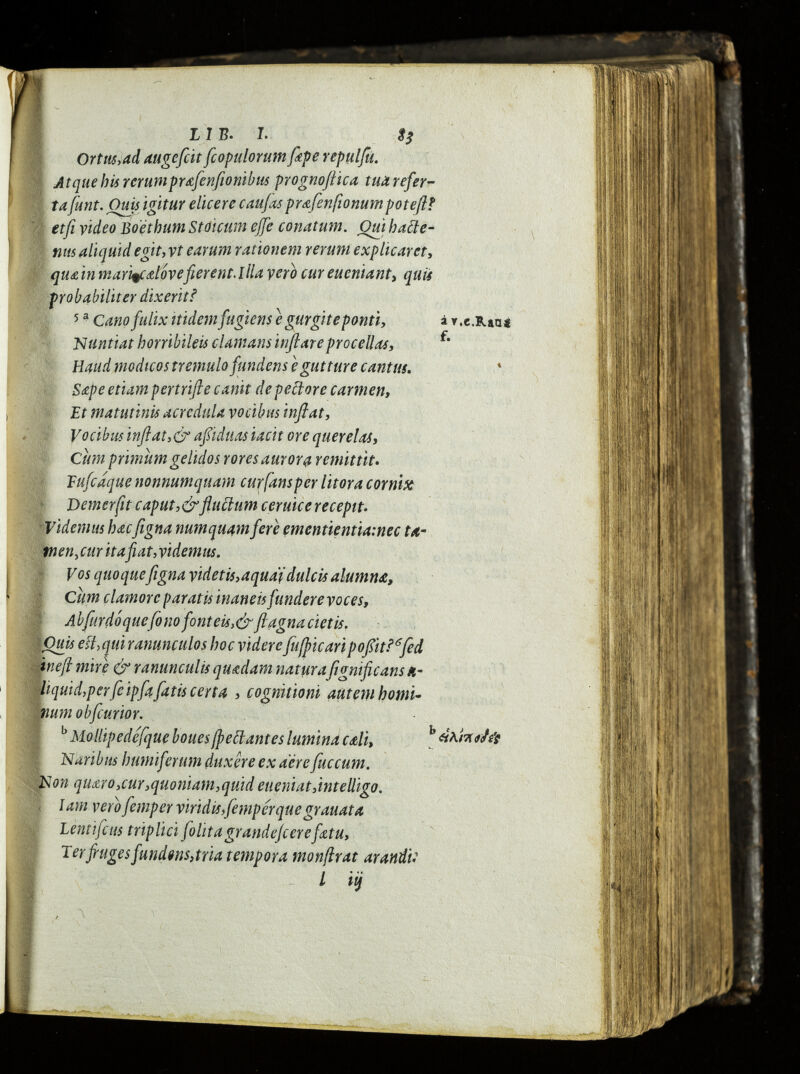 LIB. I. 83
Ortus,ad augeſcit ſcopulorum ſæpe repulſu.
Atque his rerum præſenſionibus prognoſtica tua refer-
ta ſunt. Quis igitur elicere cauſas præſenſionum poteſt?
etſi video Boëthum Stoicum eſſe conatum. Qui hacte-
nus aliquid egit, vt earum rationem rerum explicaret,
quæ in mari, cælóve fierent. Illa verò cur eueniant, quis
probabiliter dixerit?
5 a Cano fulix itidem fugiens è gurgite ponti,
Nuntiat horribileis clamans inſtare procellas,
Haud modicos tremulo fundens è gutture cantus.
Sæpe etiam pertriſte canit de pectore carmen,
Et matutinis acredula vocibus inſtat,
Vocibus inſtat, & aßiduas iacit ore querelas,
Cùm primùm gelidos rores aurora remittit.
Fuſcáque nonnumquam curſans per litora cornix
Demerſit caput, & fluctum ceruice recepit.
Videmus hæc ſigna numquam ferè ementientia: nec ta-
men, cur ita fiat, videmus.
Vos quoque ſigna videtis, aquaï dulcis alumnæ,
Cùm clamore paratis inaneis fundere voces,
Abſurdóque ſono fonteis, & ſtagna cietis.
Quis est, qui ranunculos hoc videre ſuſpicari poßit? 6 ſed
ineſt mirè & ranunculis quædam natura ſignificans a-
liquid, per ſe ipſa ſatis certa, cognitioni autem homi-
num obſcurior.
b Mollipedéſque boues ſpectantes lumina cæli,
Naribus humiferum duxêre ex aëre ſuccum.
Non quæro, cur, quoniam, quid eueniat, intelligo.
Iam verò ſemper viridis, ſempérque grauata
Lentiſcus triplici ſolita grandeſcere fætu,
Ter fruges fundens, tria tempora monſtrat arandi:
l iij
à v.c. Rana
f.
b εἰλίποδες